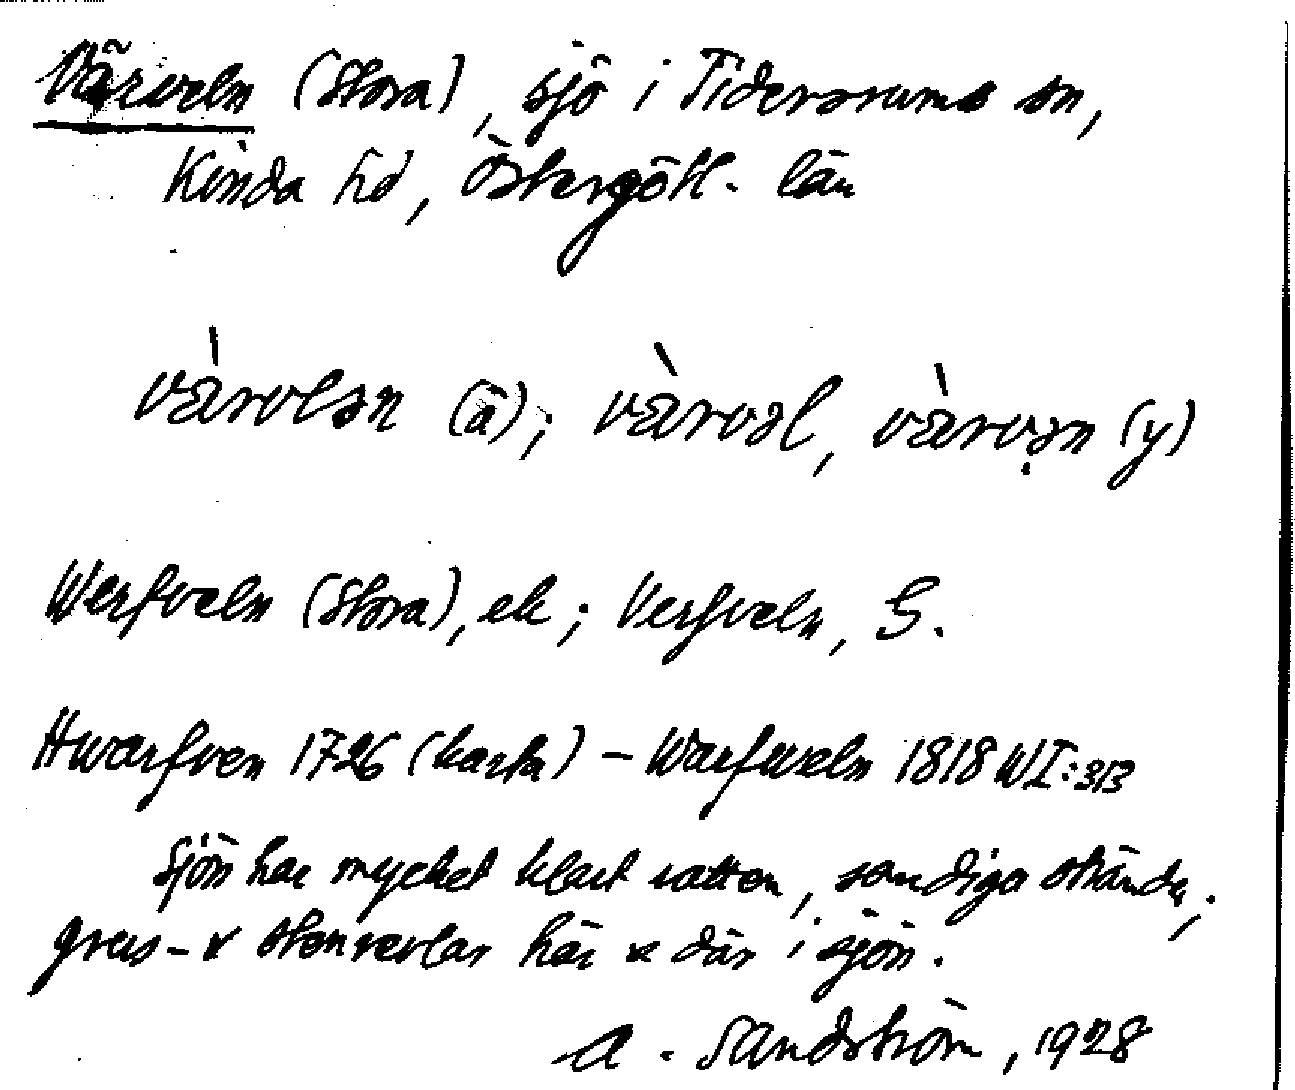 Värveln (Stora), sjö i Tidersrums sn,
Kinda hd, Östergötl. län
vàrvlən (ä); vàrvəl, vàrvən (y)
Werfveln (Stora), ek; Verfveln, G.
Hwarfven 1726 (karta) – Warfweln 1818 WI:313
Sjön har mycket klart vatten, sandiga stränder;
grus- & stenrevlar här & där i sjön.
A. Sandström, 1928